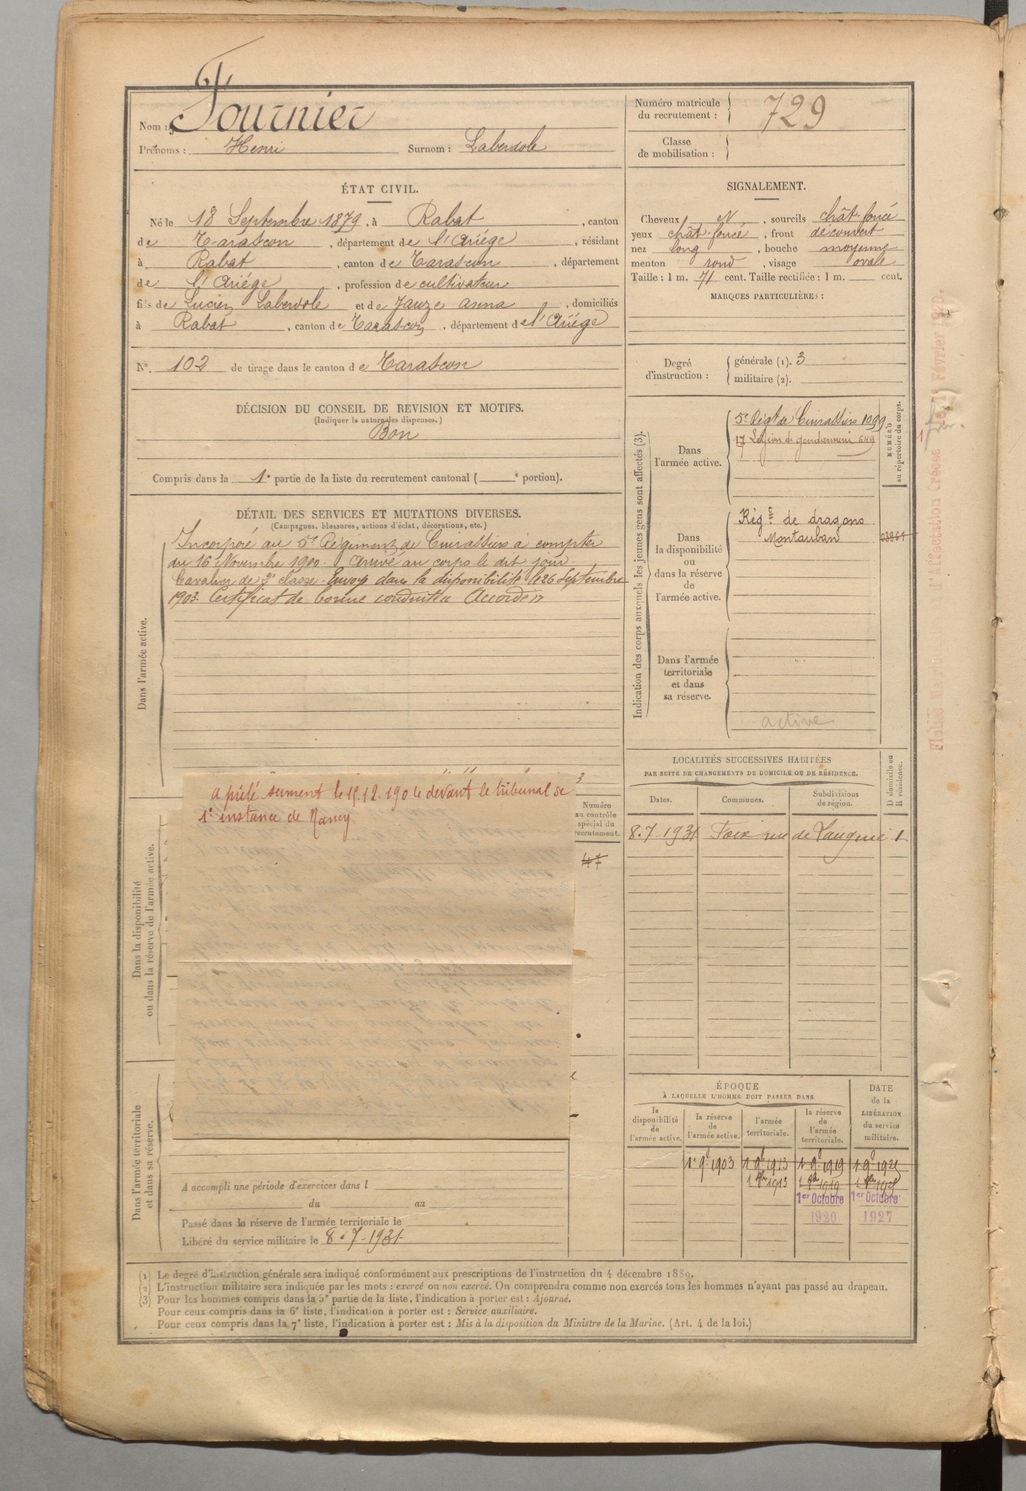 Nom : Fournier
Prénoms : Henri Surnom : Laberdole
Numéro matricule du recrutement : 729
Classe de mobilisation :
ÉTAT CIVIL.
Né le 18 Septembre 1879, à Rabat, canton
de Tarascon, département de l'Ariége, résidant
à Rabat, canton de Tarascon, département
de l'Ariége, profession de cultivateur
fils de Lucien Laberdole et de Jauze anna, domiciliés
à Rabat, canton de Tarascon, département de l'Ariége
N° 102 de tirage dans le canton de Tarascon
SIGNALEMENT.
Cheveux N, sourcils chât. foncé
yeux chât. foncé, front découvert
nez long, bouche moyenne
menton rond, visage ovale
Taille : 1 m. 71 cent. Taille rectifiée : 1 m. cent.
MARQUES PARTICULIÈRES :
Degré d'instruction :
générale (1). 3
militaire (2).
DÉCISION DU CONSEIL DE REVISION ET MOTIFS.
(Indiquer la nature des dispenses.)
Bon
Compris dans la 1e partie de la liste du recrutement cantonal ( e portion).
DÉTAIL DES SERVICES ET MUTATIONS DIVERSES.
(Campagnes, blessures, actions d'éclat, décorations, etc.)
Dans l'armée active.
Incorporé au 5e Régiment de Cuirassiers à compter
du 16 Novembre 1900. arrivé au corps le dit jour
Cavalier de 2e classe. Envoyé dans la disponibilité le 26 Septembre
1903. Certificat de bonne conduite Accordé
a prêté serment le 15.12.1904 devant le tribunal de
1e instance de Nancy
Numéro au contrôle spécial du recrutement.
47
Dans la disponibilité ou dans la réserve de l'armée active.
Dans l'armée territoriale et dans sa réserve.
A accompli une période d'exercices dans l
du au
Passé dans la réserve de l'armée territoriale le
Libéré du service militaire le 8-7-1931
Indication des corps auxquels les jeunes gens sont affectés (3).
NUMÉRO au répertoire du corps.
Dans l'armée active.
5e Régt de Cuirassiers 1099
17 Légion de gendarmerie 649
Dans la disponibilité ou dans la réserve de l'armée active.
Régt de dragons
Montauban
Dans l'armée territoriale et dans sa réserve.
active
LOCALITÉS SUCCESSIVES HABITÉES
PAR SUITE DE CHANGEMENTS DE DOMICILE OU DE RÉSIDENCE.
Dates. Communes. Subdivisions de région. D domicile ou R résidence.
8-7-1931 Foix rue de
ÉPOQUE
À LAQUELLE L'HOMME DOIT PASSER DANS
la disponibilité de l'armée active.
la réserve de l'armée active.
l'armée territoriale.
la réserve de l'armée territoriale.
DATE de la LIBÉRATION du service militaire.
1903 1913 1919
1913 1919
1er Octobre 1er Octobre
1920 1927
(1) Le degré d'instruction générale sera indiqué conformément aux prescriptions de l'instruction du 4 décembre 1889.
(2) L'instruction militaire sera indiquée par les mots : exercé ou non exercé. On comprendra comme non exercés tous les hommes n'ayant pas passé au drapeau.
(3) Pour les hommes compris dans la 5e partie de la liste, l'indication à porter est : Ajourné.
Pour ceux compris dans la 6e liste, l'indication à porter est : Service auxiliaire.
Pour ceux compris dans la 7e liste, l'indication à porter est : Mis à la disposition du Ministre de la Marine. (Art. 4 de la loi.)